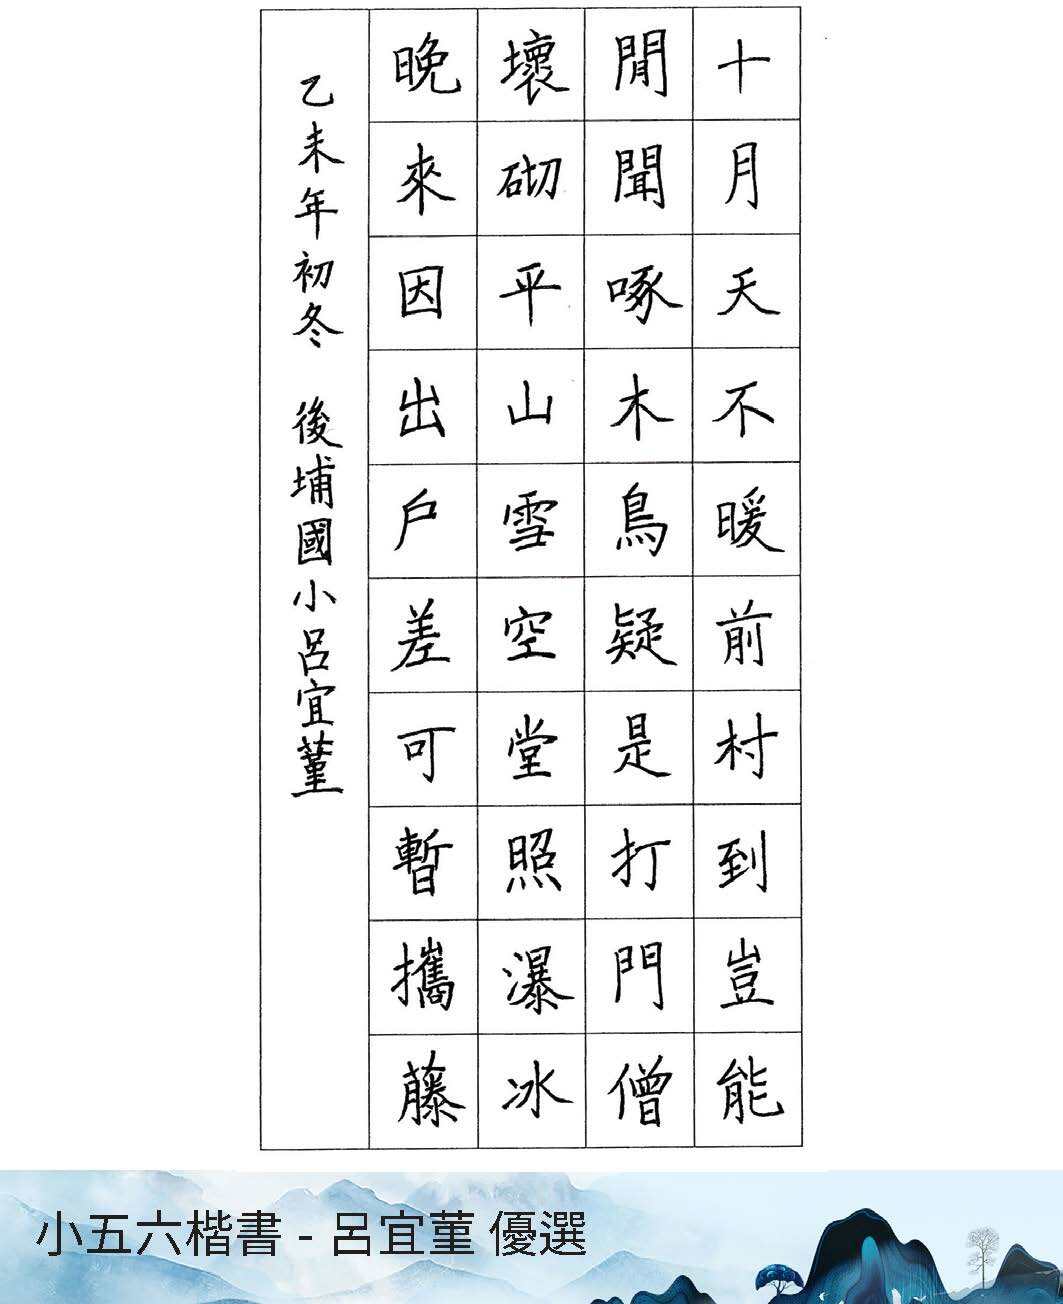 十月天不暖前村到豈能
閒聞啄木鳥疑是打門僧
壞砌平山雪空堂照瀑冰
晚來因出戶差可暫攜藤
乙未年初冬 後埔國小呂宜菫
小五六楷書 - 呂宜菫 優選